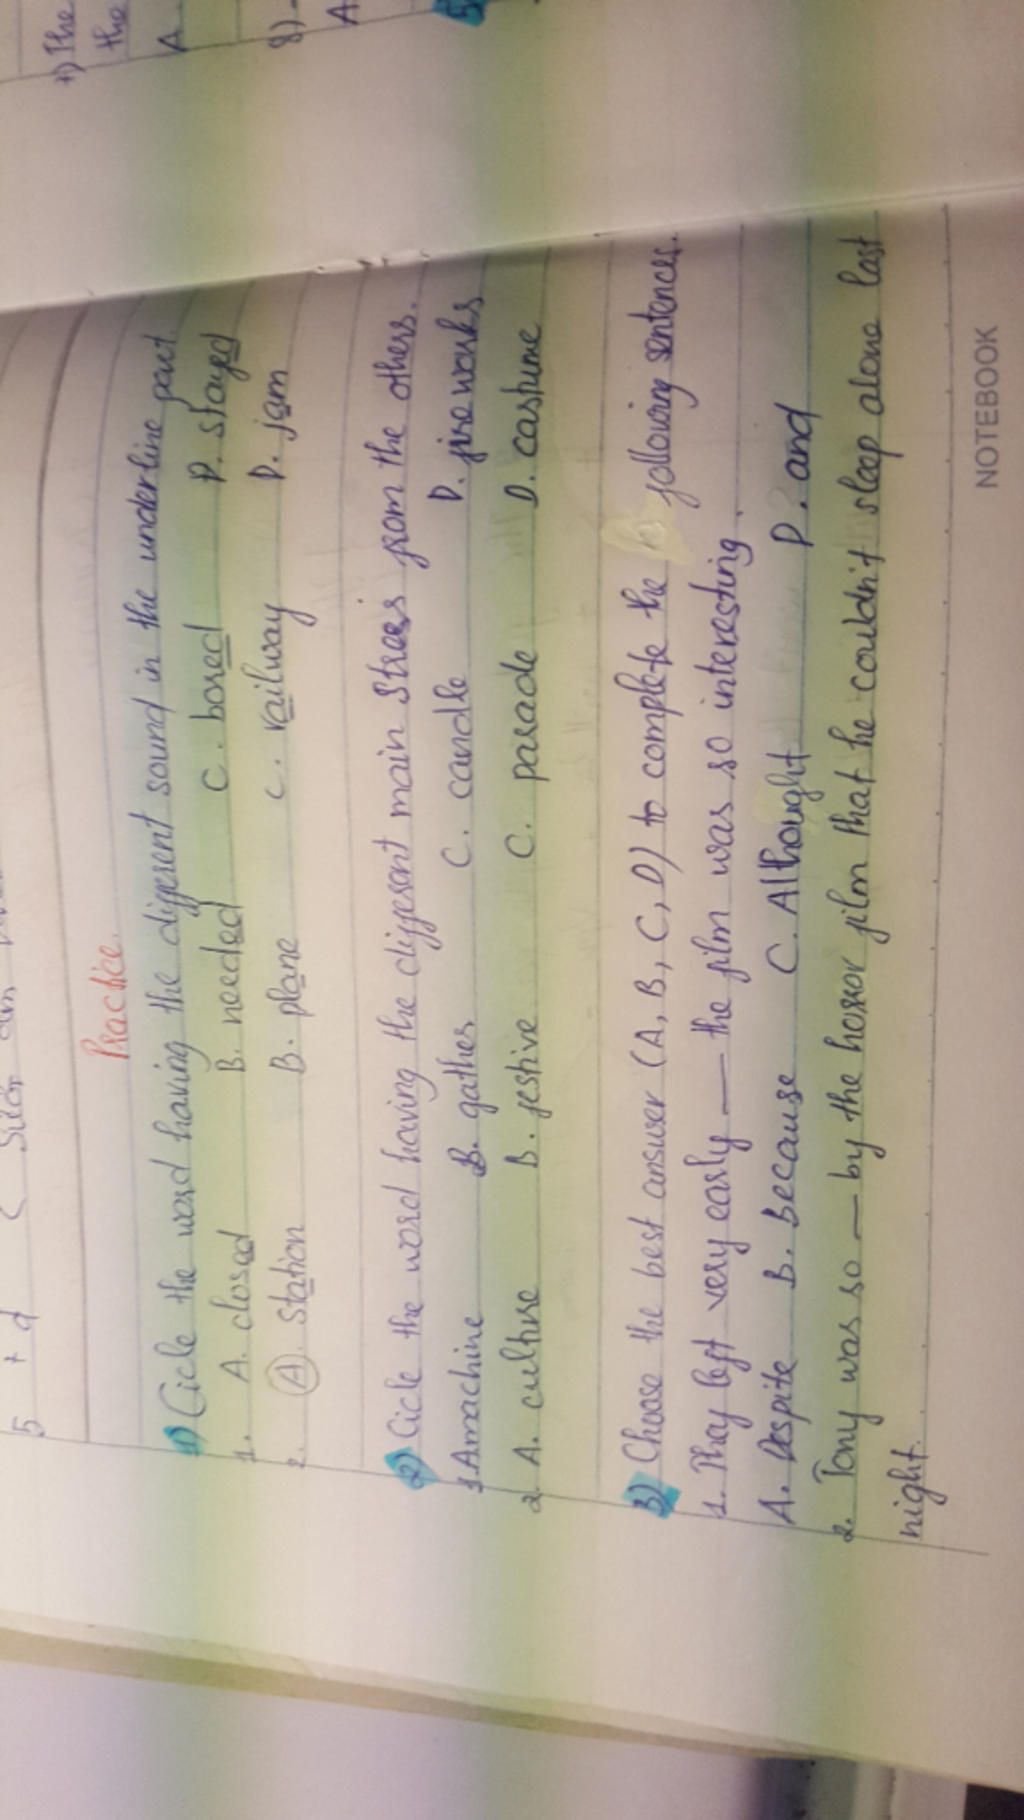 Practice.
1) Cicle the word having the different sound in the underline part
1. A. closed B. needed C. bored D. stayed
2. A. station B. plane C. railway D. jam
2) Cicle the word having the different main stress from the others.
1 A machine B. gather C. candle D. fireworks
2. A. culture B. festive C. parade D. costume
3) Choose the best answer (A, B, C, D) to complete the following sentences.
1. They left very early — the film was so interesting.
A. Despite B. Because C. Althought D. and
2. Tony was so — by the horror film that he couldn't sleep alone last
night.
NOTEBOOK
7) The
the
A
8) -
A
5